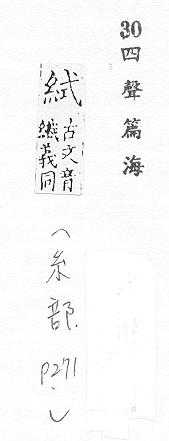 30四聲篇海
古文音
纎義同
（糸部 P271.）